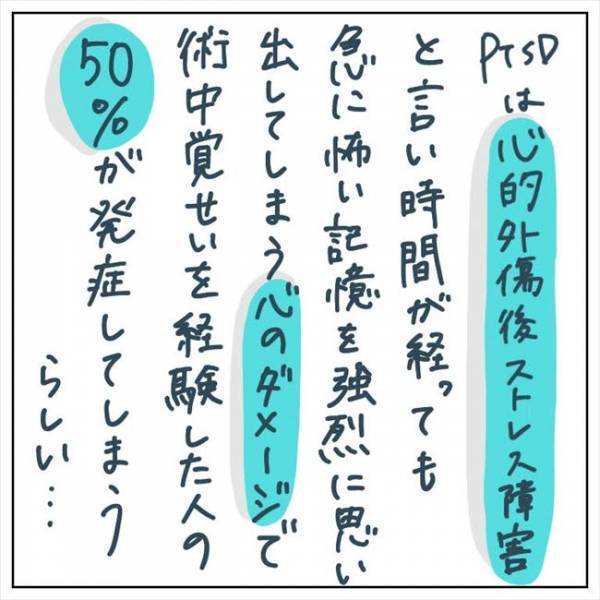 PTSDは心的外傷後ストレス障害
と言い時間が経っても
急に怖い記憶を強烈に思い
出してしまう心のダメージで
術中覚せいを経験した人の
50%が発症してしまう
らしい…